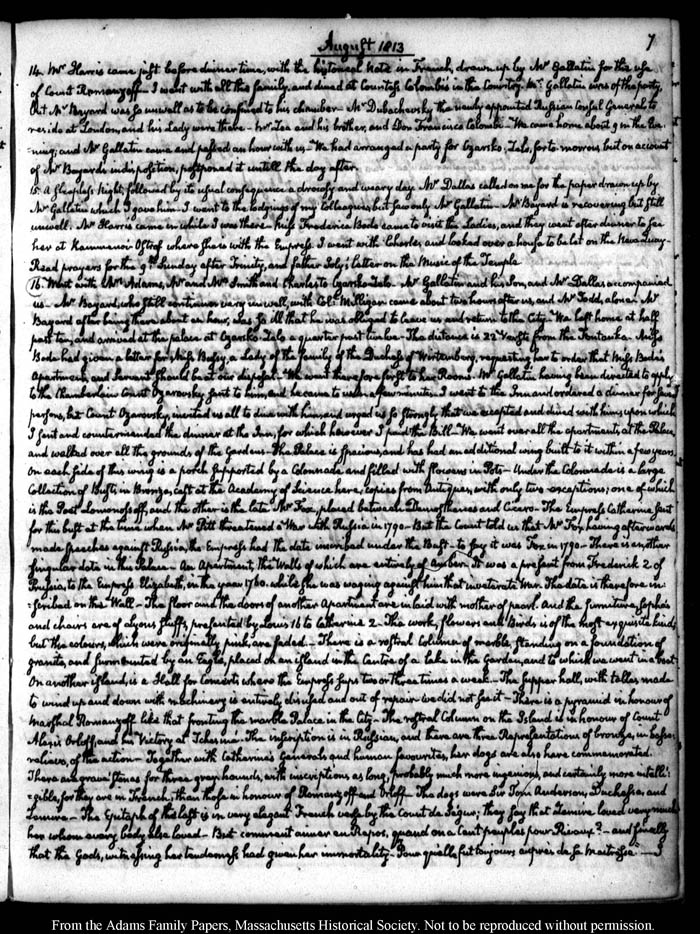 August 1813
7
14. Mr Harris came just before dinner time, with the historical Note in French, drawn up by Mr Gallatin for the use
of Count Romanzoff. I went with all the family, and dined at Countess Colombi's in the Country. Mr Gallatin was of the party,
but Mr Bayard was so unwell as to be confined to his chamber. Mr Dubachevsky the newly appointed Russian Consul General to
reside at London, and his Lady were there — and his brother, and Don Francisco Colombi. We came home about 9 in the Eve-
ning; and Mr Gallatin came and passed an hour with us. We had arranged a party for Czarsko-Zelo, for to-morrow, but on account
of Mr Bayard's indisposition, postponed it untill the day after.
15. A sleepless Night, followed by its usual consequence a drowsy and weary day. Mr Dallas called on me for the paper drawn up by
Mr Gallatin which I gave him. I went to the lodgings of my Colleagues, but saw only Mr Gallatin. Mr Bayard is recovering but still
unwell. Mr Harris came in while I was there. Miss Frederica Bode came to visit the Ladies, and they went after dinner to see
her at Kammenoi Ostrof where she is with the Empress. I went with Charles, and looked over a house to be let on the Newa-quay.
Read prayers for the 9th Sunday after Trinity, and father Poly's letter on the Music of the Temple.
16. Went with Mrs Adams, Mr and Mrs Smith and Charles to Czarsko Zelo. Mr Gallatin and his Son, and Mr Dallas accompanied
us — Mr Bayard, who still continues very unwell, with Coll Milligan came about two hours after us, and Mr Todd, alone. Mr
Bayard after being there about an hour, was so ill that he was obliged to leave us and return to the City. We left home at half
past ten, and arrived at the palace at Czarsko-Zelo a quarter past twelve. The distance is 22 Versts from the Fontanka. Miss
Bode had given a letter for Miss Bossy, a Lady of the family of the Duchess of Wirtemberg, requesting her to order that Miss Bode's
Apartment, and servant should be at our disposal. We went therefore first to her Rooms. Mr Gallatin having been directed to apply
to the Chamberlain Count Ozarovsky, sent to him, and he came to us in a few minutes. I went to the Inn and ordered a dinner for
persons, but Count Ozarovsky, invited us all to dine with him, and urged us so strongly that we accepted and dined with him; upon which
I sent and countermanded the dinner at the Inn, for which however I paid the Bill. We went over all the apartments, at the Palace
and walked over all the grounds of the Gardens. The Palace is spacious, and has had an additional wing built to it within a few years.
On each side of this wing is a porch supported by a Colonnade and filled with flowers in Pots. Under the Colonnade is a large
Collection of Busts in Bronze, cast at the Academy of Science here, copies from Antiques, with only two exceptions; one of which
is the Poet Lomonosoff, and the other is the late Mr Fox, placed between Demosthenes and Cicero. The Empress Catherine sent
for this bust at the time when Mr Pitt threatened a War with Russia in 1790. But the Count told us that Mr Fox, having afterwards
made speeches against Russia, the Empress had the date inscribed under the Bust — to say it was Fox in 1790. There is another
singular date in this Palace. An Apartment, the Walls of which are entirely of Amber. It was a present from Frederick 2 of
Prussia, to the Empress Elizabeth, in the year 1760. while she was waging against him that inveterate War. The date is therefore in-
scribed on the Wall. The floor and the doors of another Apartment are inlaid with mother of pearl. And the furniture, Sopha's
and chairs are of Lyons stuffs, presented by Louis 16 to Catherine 2. The work, flowers and Birds is of the most exquisite kind,
but the colours, which were originally pink, are faded. There is a rostral Column of marble, standing on a foundation of
granite, and surmounted by an Eagle, placed on an island in the Centre of a Lake in the Garden, and to which we went in a boat.
On another island, is a Hall for Concerts where the Empress sups two or three times a week. The supper hall, with tables made
to wind up and down with machinery is entirely disused and out of repair. We did not see it. There is a pyramid in honour of
Marshal Romanzoff like that fronting the marble Palace in the City. The rostral Column on the Island is in honour of Count
Alexis Orloff, and his Victory at Tchesma. The inscription is in Russian, and there are three Representations of bronze, in basso-
relievo, of the action. Together with Catharine's Generals and human favourites, her dogs are also here commemorated.
There are grave stones for three greyhounds, with inscriptions as long, probably much more ingenious, and certainly more intelli-
gible, for they are in French, than those in honour of Romanzoff and Orloff. The dogs were Sir Tom Anderson, Duchesse, and
Zemire. The Epitaph of the last is in very elegant French verse by the Count de Segur; they say that Zemire loved very much
her whom every body else loved. But comment aimer en Repos, quand on a cent peuples pour Rivaux? — and finally
that the Gods, witnessing her tenderness had given her immortality. Pour qu'elle fut toujours auprès de sa Maitresse. — I
From the Adams Family Papers, Massachusetts Historical Society. Not to be reproduced without permission.